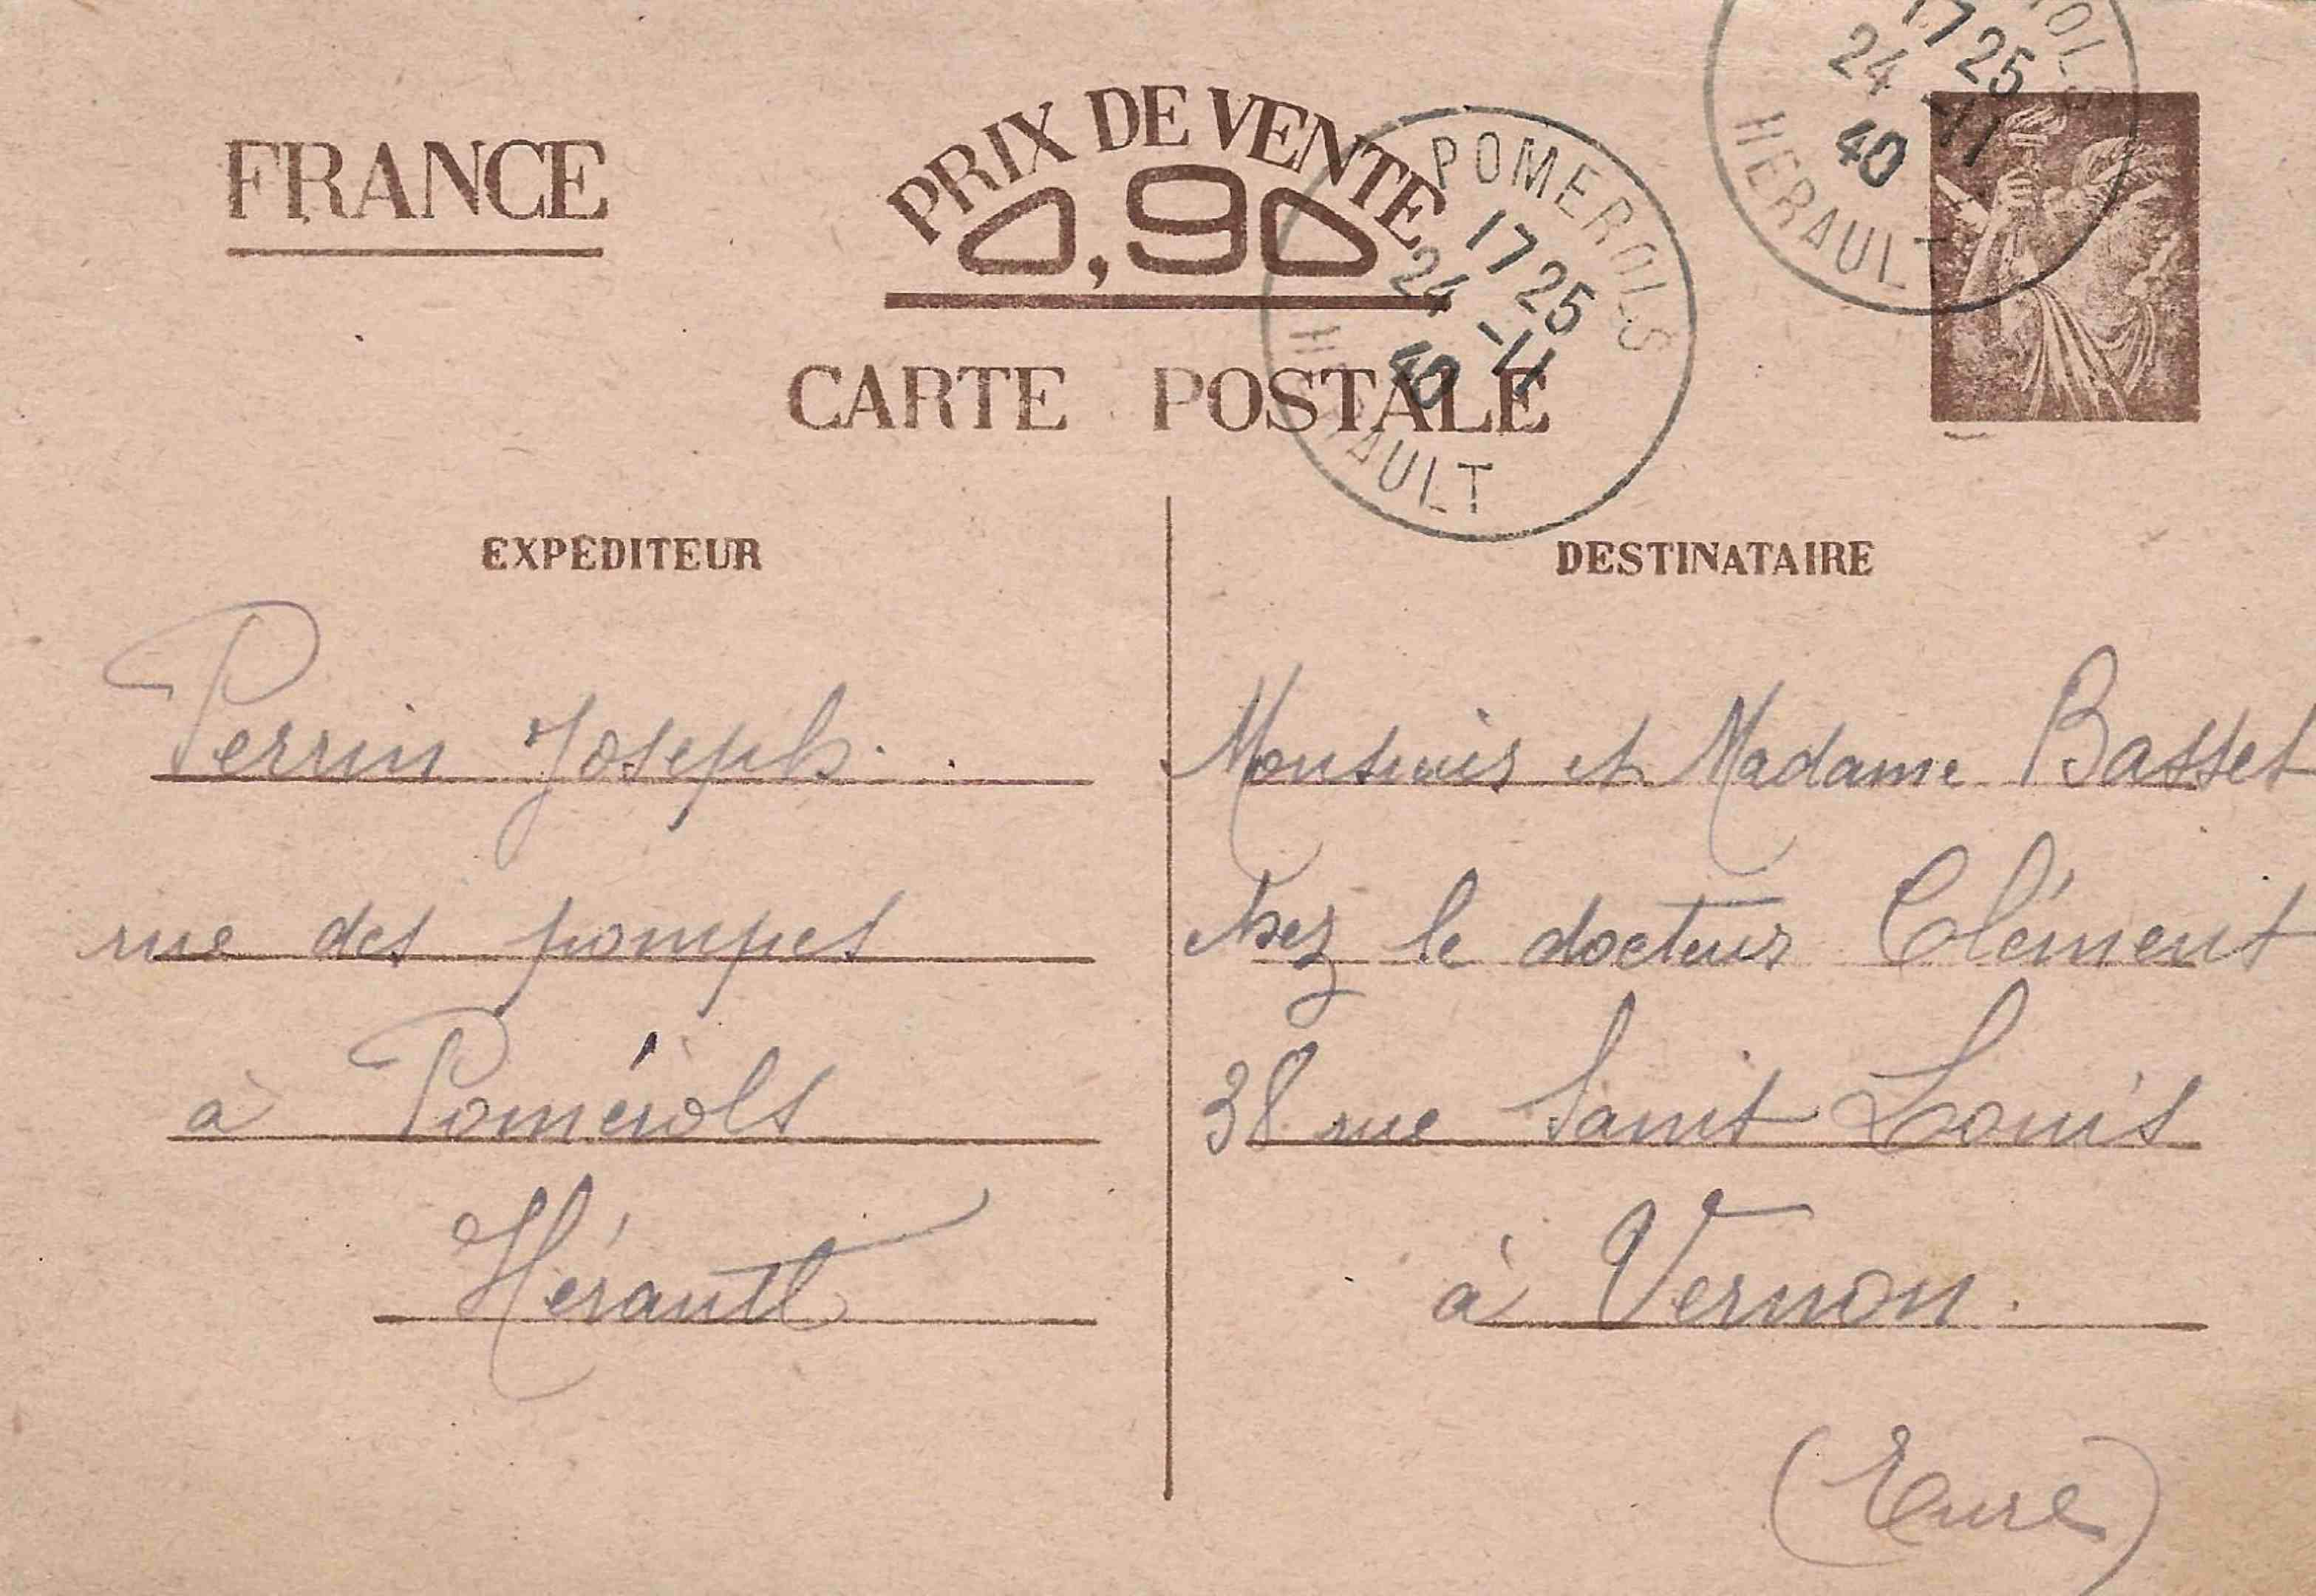 FRANCE
PRIX DE VENTE
0,90
CARTE POSTALE
POMEROLS
17 25
24 -11
40
HERAULT
OLS
17 25
24 -11
40
HERAULT
EXPÉDITEUR
Perrin Joseph.
rue des pompes
à Pomérols
Hérault
DESTINATAIRE
Monsieur et Madame Basset
chez le docteur Clément
38 rue Saint Louis
à Vernon.
(Eure)